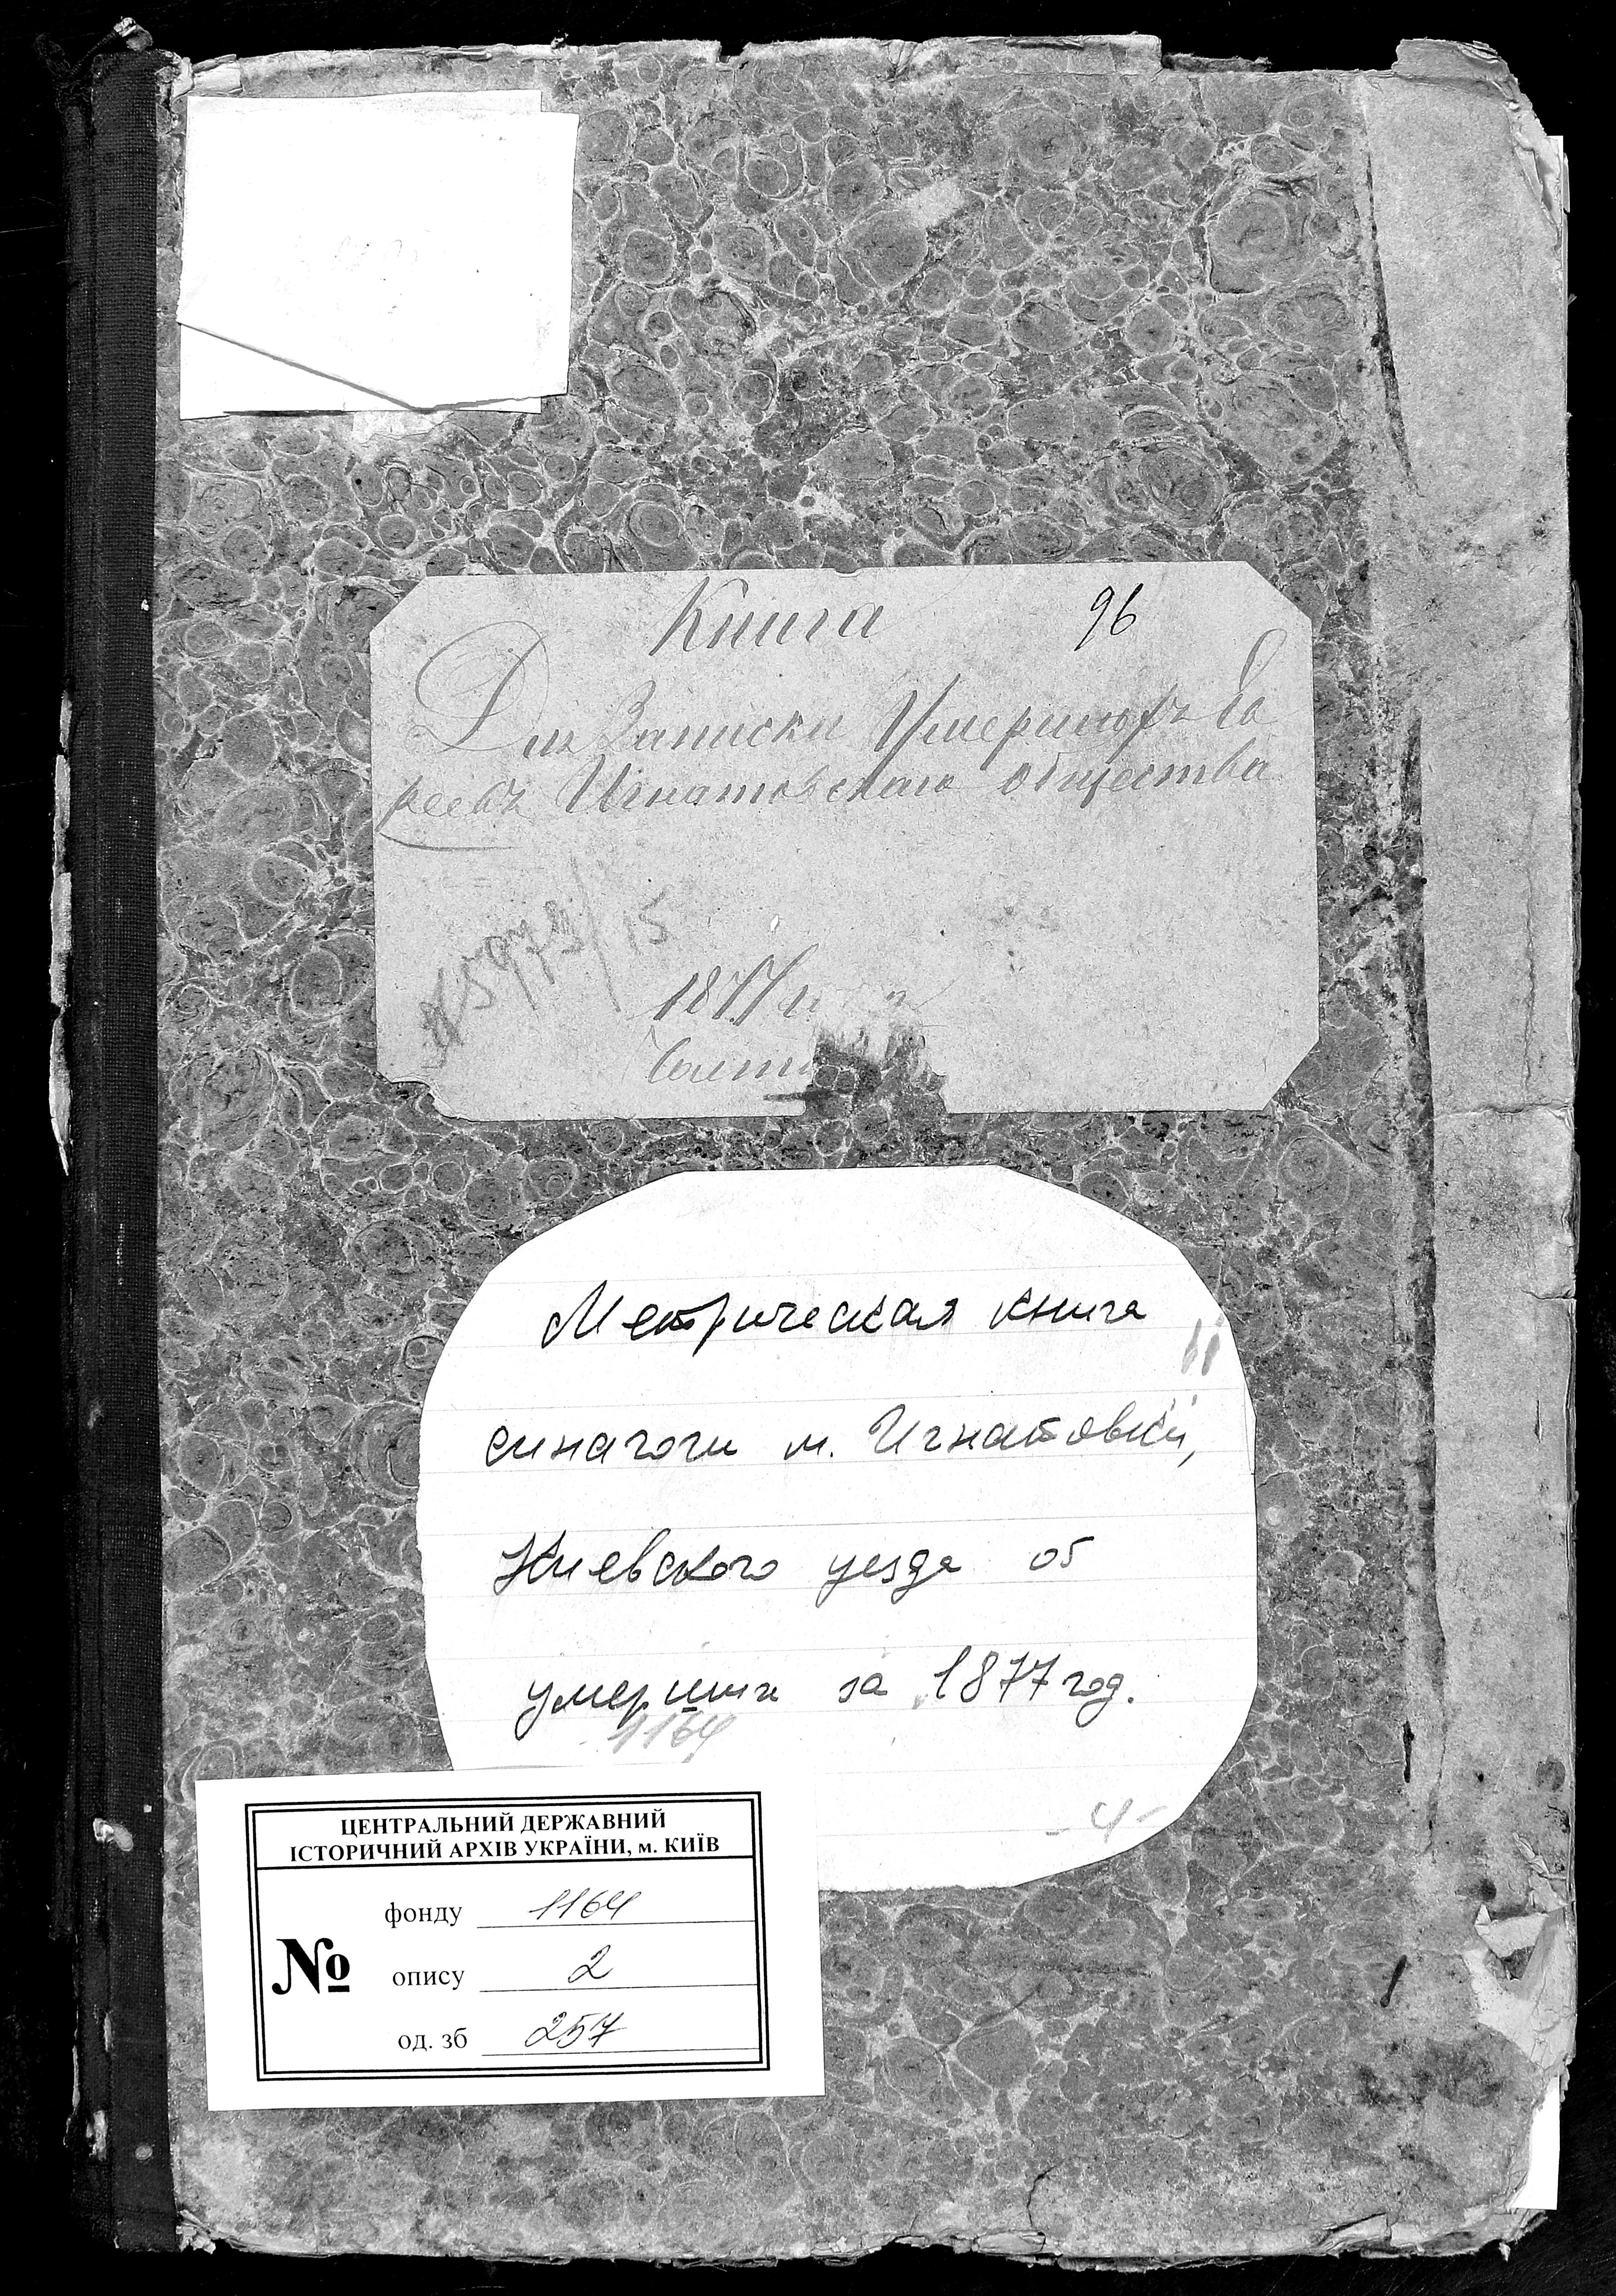 Книга 96
Для Записки Умершихъ Ев
реевъ Игнатовскаго общества
№ 5973/15
1877 г
Метрическая книга
синагоги м. Игнатовки,
Киевского уезда об
умерших за 1877 год.
1164
- 4 -
ЦЕНТРАЛЬНИЙ ДЕРЖАВНИЙ
ІСТОРИЧНИЙ АРХІВ УКРАЇНИ, м. КИЇВ
№
фонду 1164
опису 2
од. зб 257